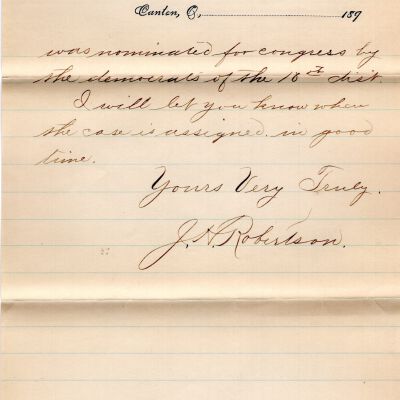 Canton, O, 189
was nominated for congress by
the democrats of the 18th dist.
I will let you know when
the case is assigned in good
time.
Yours Very Truly.
J. H. Robertson.